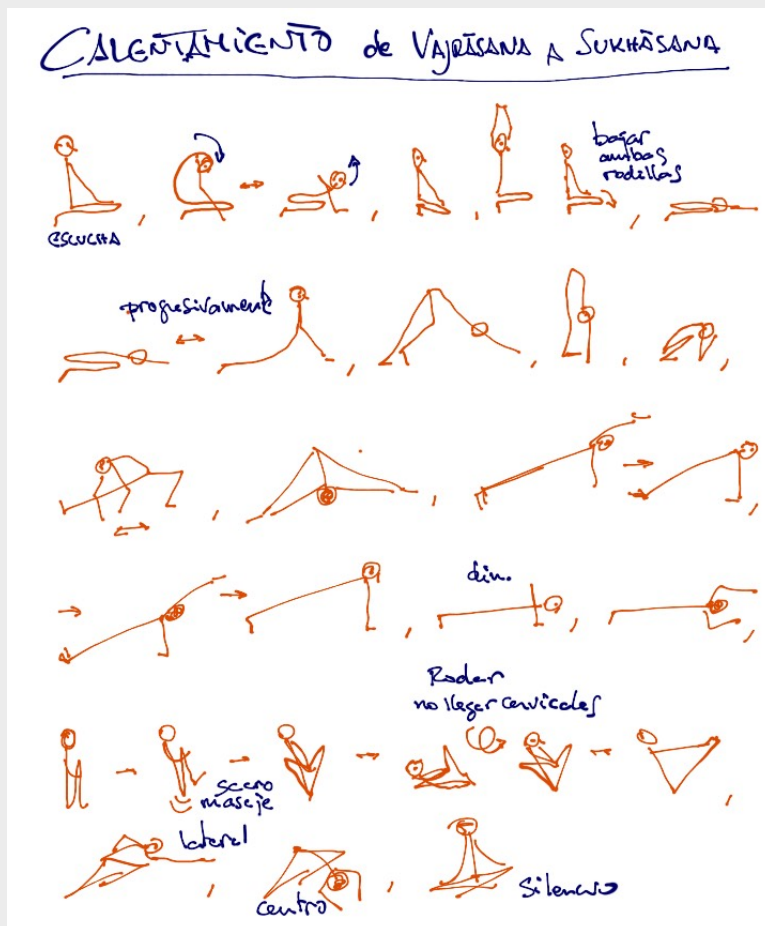 CALENTAMIENTO de VAJRĀSANA A SUKHĀSANA
bajar
ambas
rodillas
ESCUCHA
progresivamente
din.
Rodar
no llegar cervicales
sacro
masaje
lateral
centro
Silencio